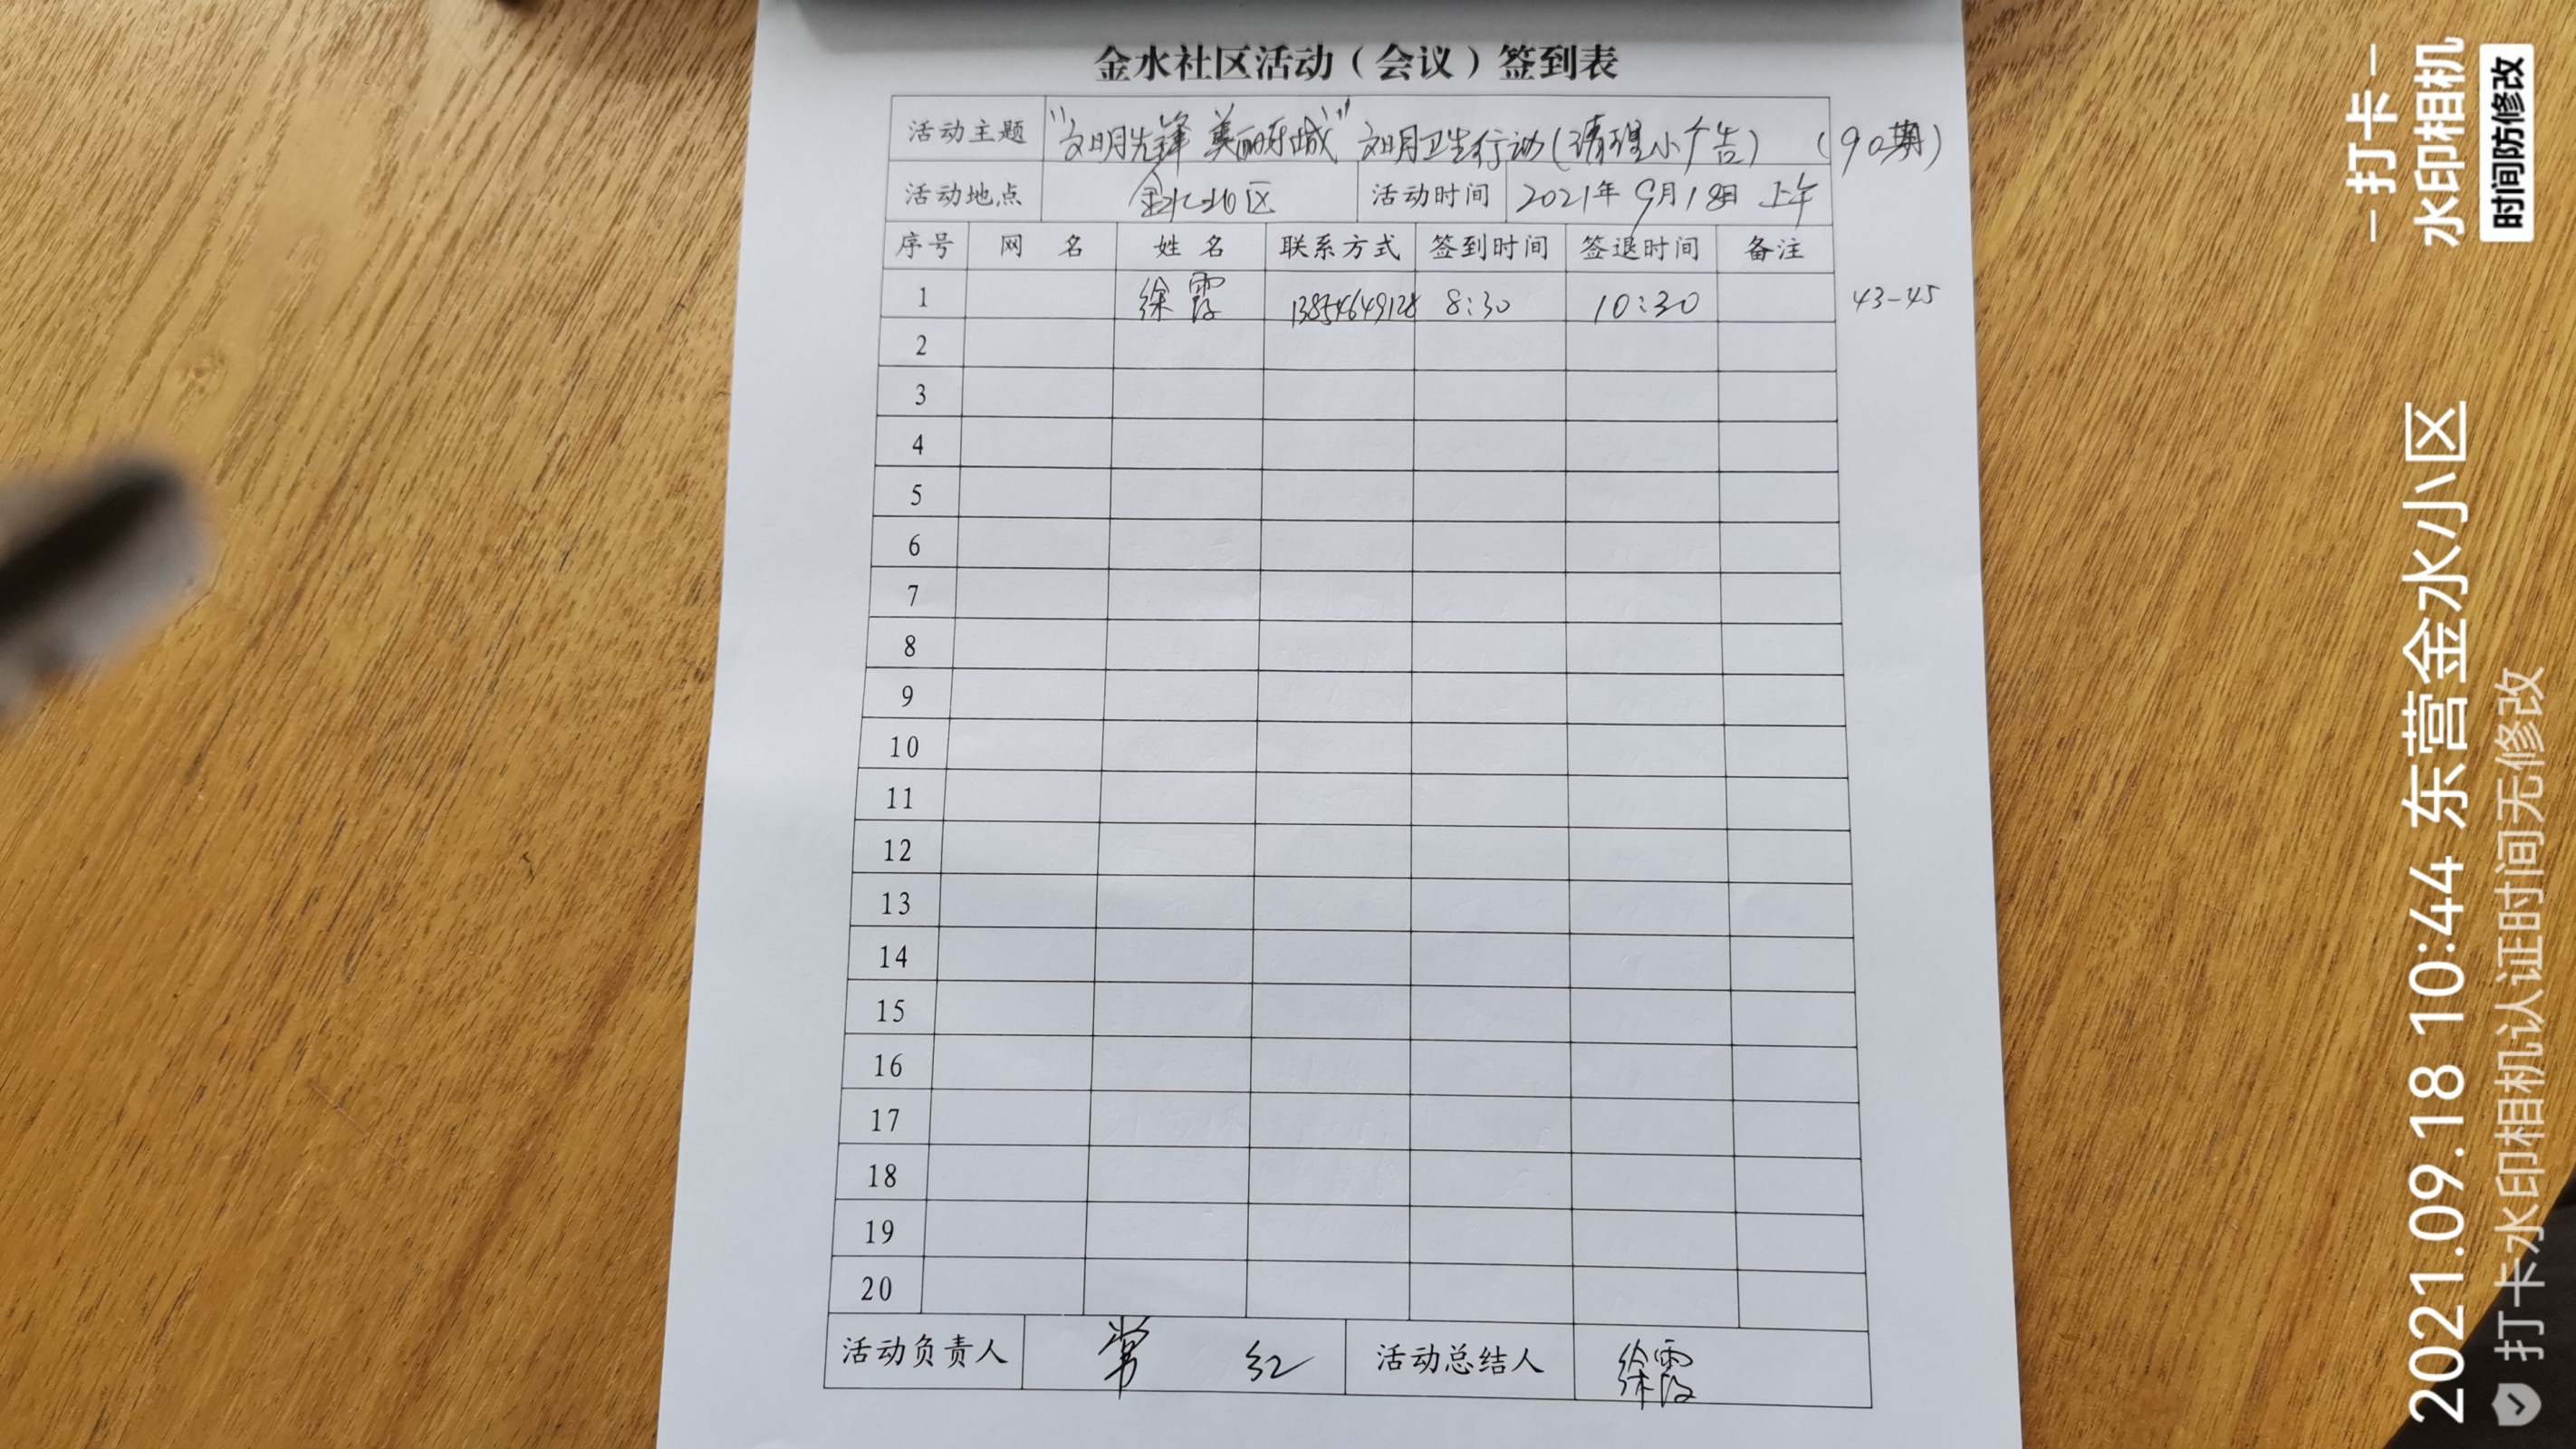 金水社区活动（会议）签到表
活动主题 "文明先锋 美丽东城" 文明卫生行动(清理小广告) (90期)
活动地点 金水北区 活动时间 2021年9月18日 上午
序号 网 名 姓 名 联系方式 签到时间 签退时间 备注
1 徐霞 13854649128 8:30 10:30 43-45
2
3
4
5
6
7
8
9
10
11
12
13
14
15
16
17
18
19
20
活动负责人 常 红 活动总结人 徐霞
打卡
水印相机
时间防修改
2021.09.18 10:44 东营金水小区
打卡水印相机认证时间无修改